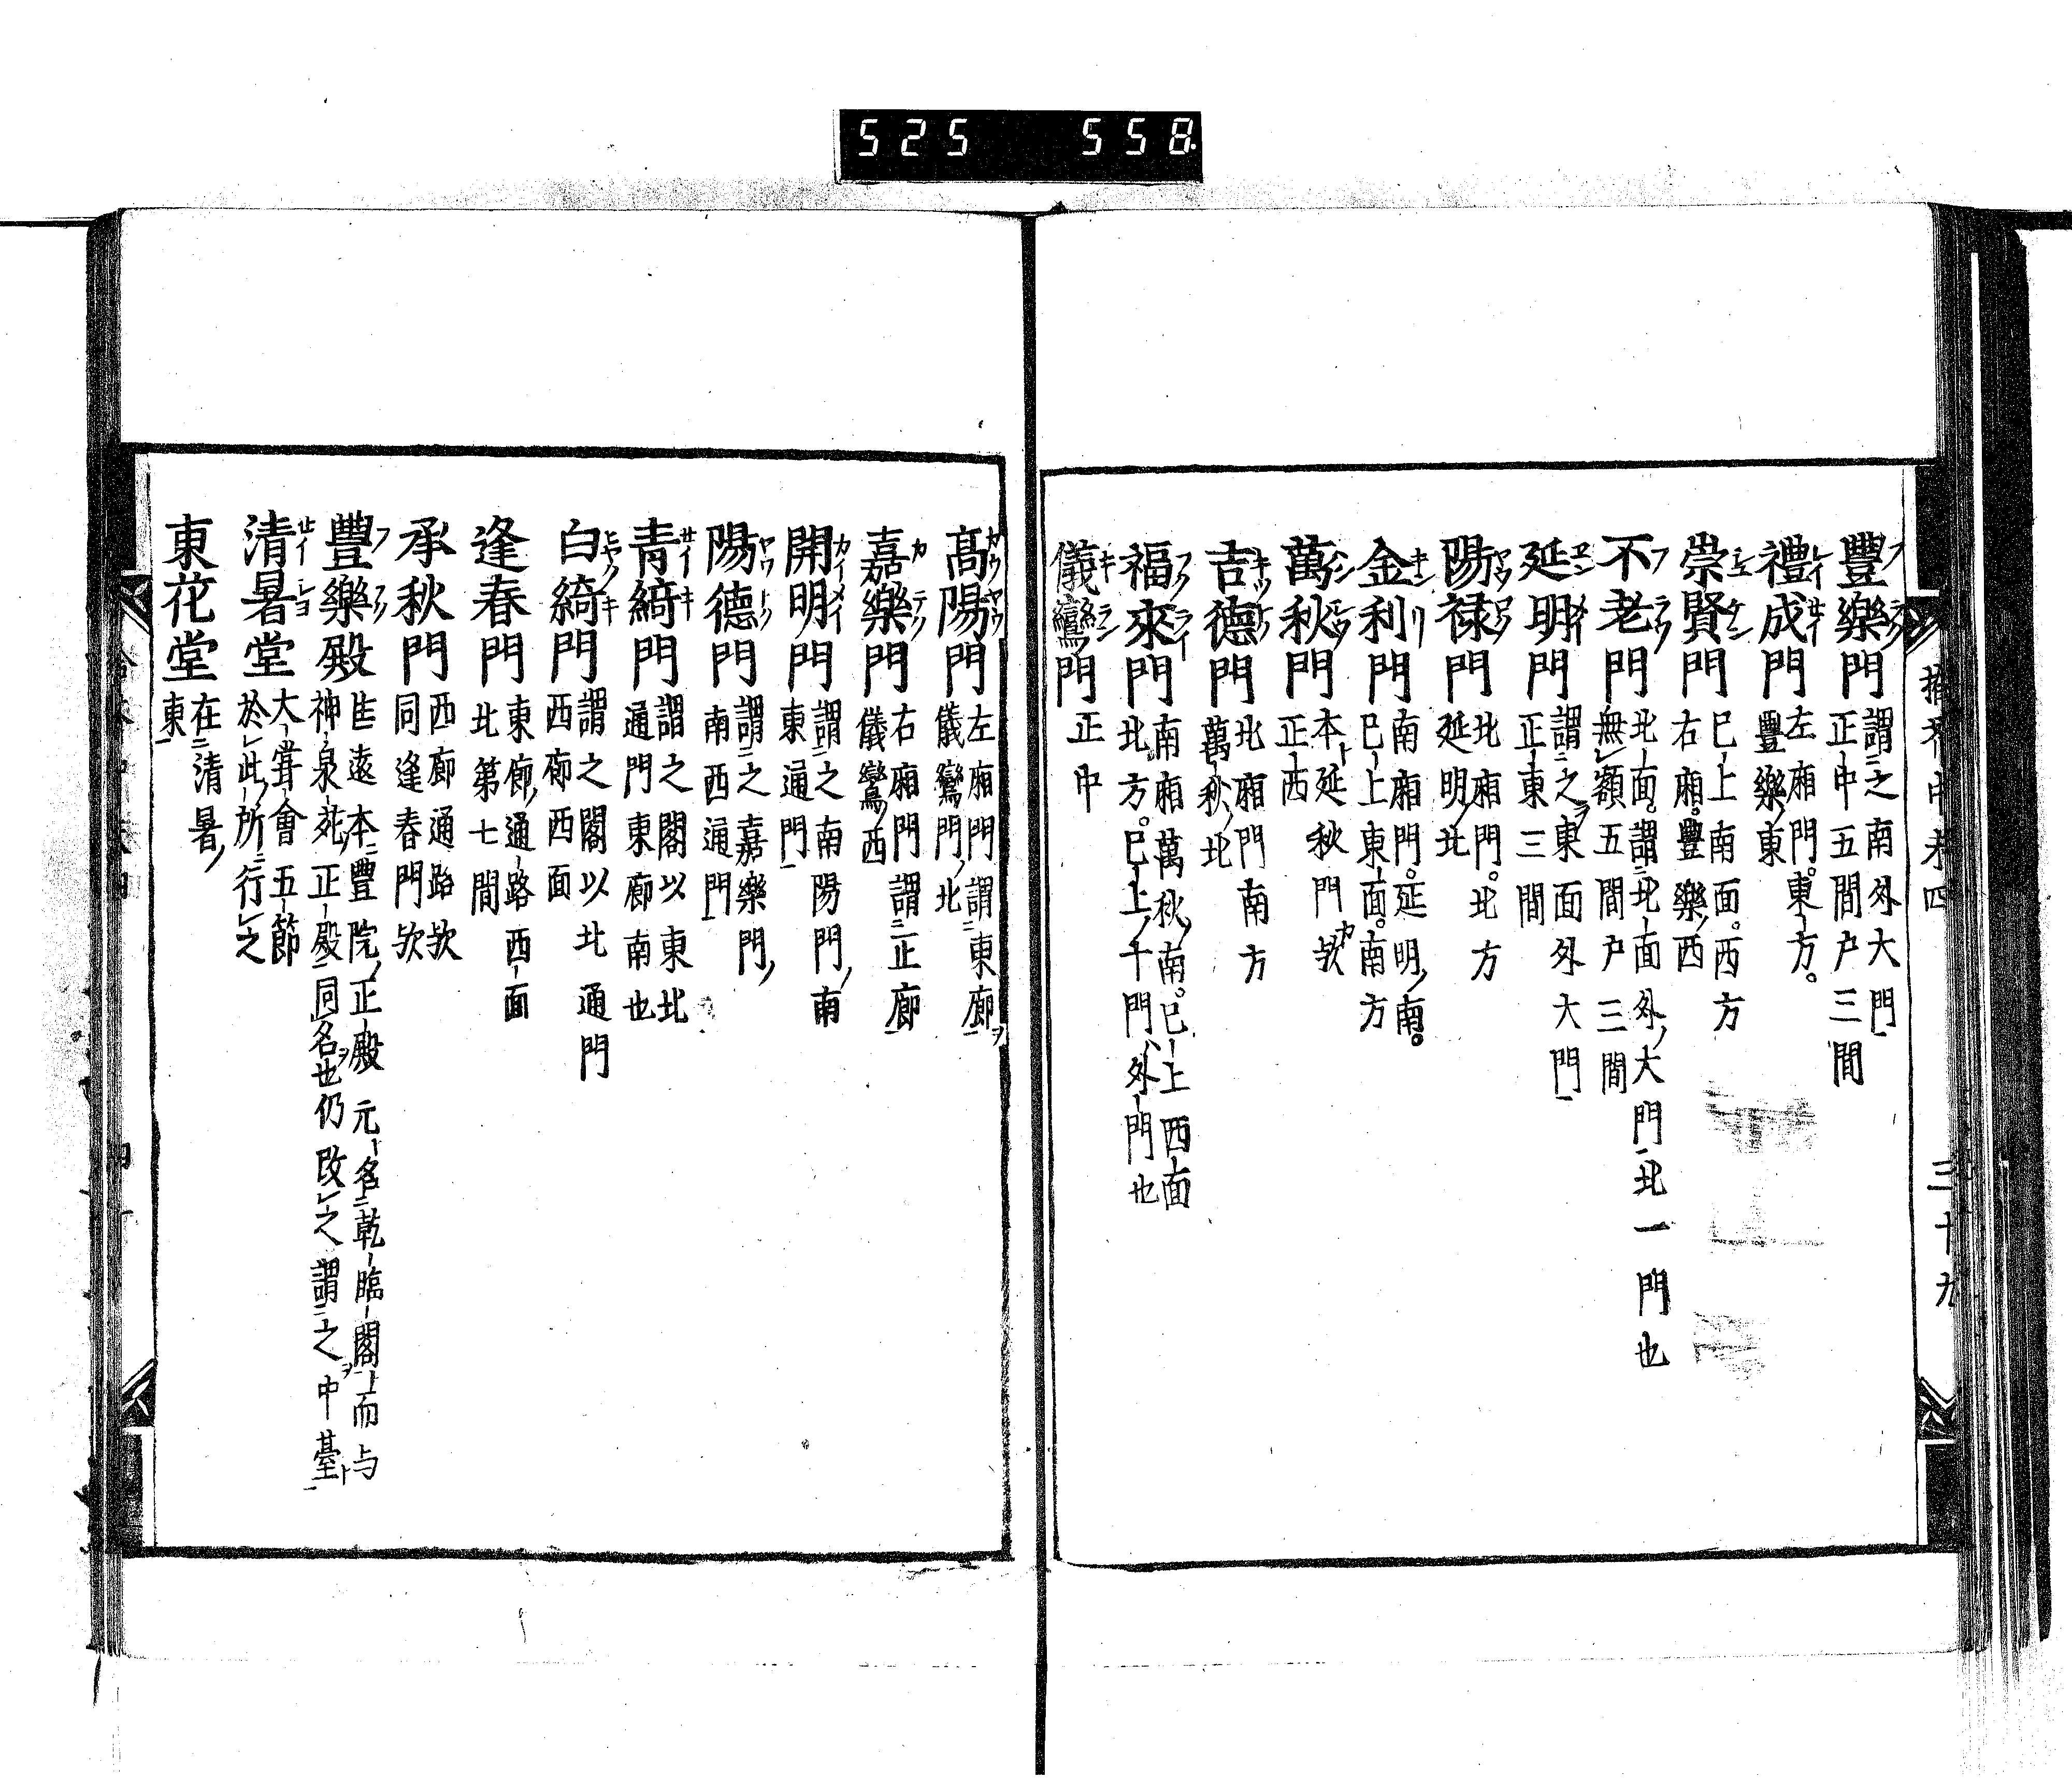 525 558
豐樂門 謂之南外大門
正中五間戸三間
禮成門 左廂門。東方。
豐樂東
崇賢門 已上南面。西方
右廂。豐樂西
不老門 北面。謂北面外大門北一門也
無額五間戸三間
延明門 謂之東面外大門
正東三間
陽禄門 北廂門。北方
延明北
金利門 南廂門。延明南。
已上東面。南方
萬秋門 本延秋門欤
正西
吉德門 北廂門南方
萬秋北
福來門 南廂萬秋南。已上西面
北方。已上十門外門也
儀鸞門 正中
三十九
髙陽門 左廂門謂東廊
儀鸞門北
嘉樂門 右廂門謂正廊
儀鸞西
開明門 謂之南陽門南
東通門
陽德門 謂之嘉樂門
南西通門
青綺門 謂之閣以東北
通門東廊南也
白綺門 謂之閣以北通門
西廊西面
逢春門 東廊通路西面
北第七間
承秋門 西廊通路欤
同逢春門欤
豐樂殿 遠本豐院正殿元名乾臨閣而与
神泉苑正殿同名也仍改之謂之中臺
清暑堂 大甞會五節
於此所行之
東花堂 在清暑
東